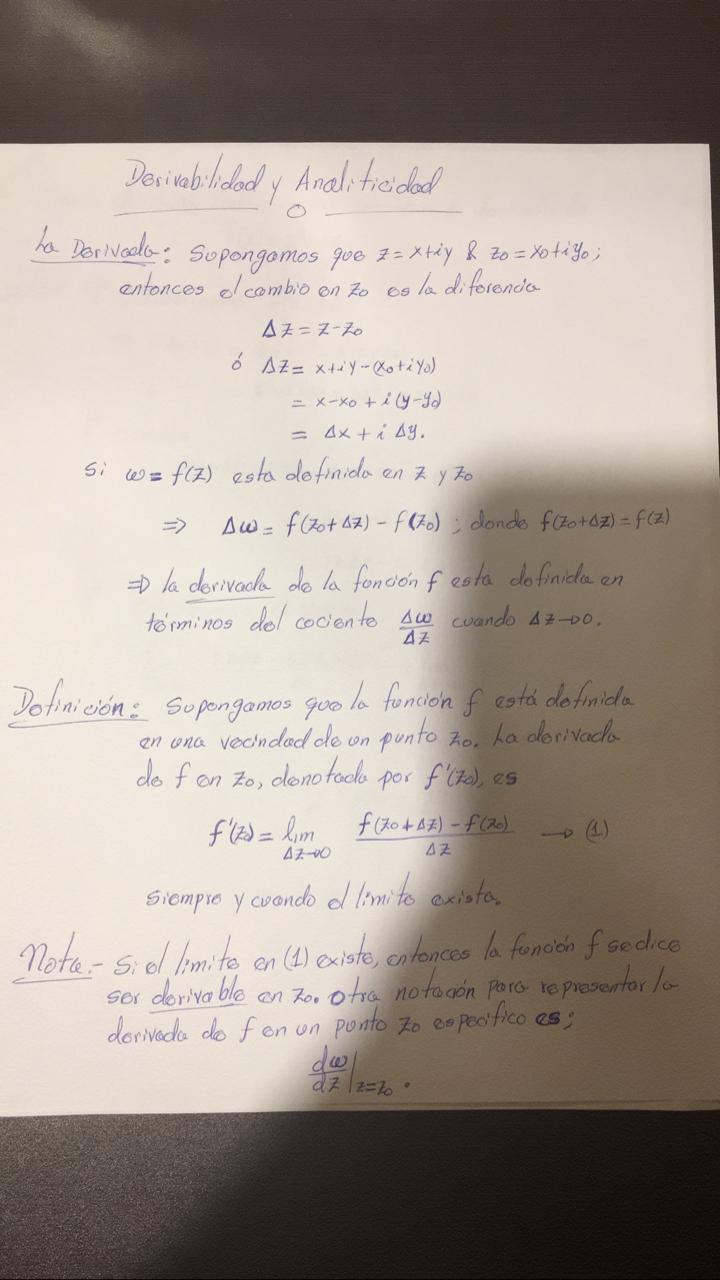 Derivabilidad y Analiticidad
La Derivada: Supongamos que z = x+iy & z₀ = x₀+iy₀;
entonces el cambio en z₀ es la diferencia
Δz = z-z₀
ó Δz = x+iy-(x₀+iy₀)
= x-x₀ + i(y-y₀)
= Δx + i Δy.
Si ω = f(z) esta definida en z y z₀
⇒ Δω = f(z₀+Δz) - f(z₀) ; donde f(z₀+Δz) = f(z)
⇒ la derivada de la función f esta definida en
términos del cociente Δω/Δz cuando Δz→0.
Definición: Supongamos que la función f está definida
en una vecindad de un punto z₀. La derivada
de f en z₀, denotada por f'(z₀), es
f'(z₀) = lim Δz→0 (f(z₀+Δz) - f(z₀))/Δz → (1)
siempre y cuando el límite exista.
Nota.- Si el límite en (1) existe, entonces la función f se dice
ser derivable en z₀. Otra notación para representar la
derivada de f en un punto z₀ especifico es;
dω/dz |z=z₀ .